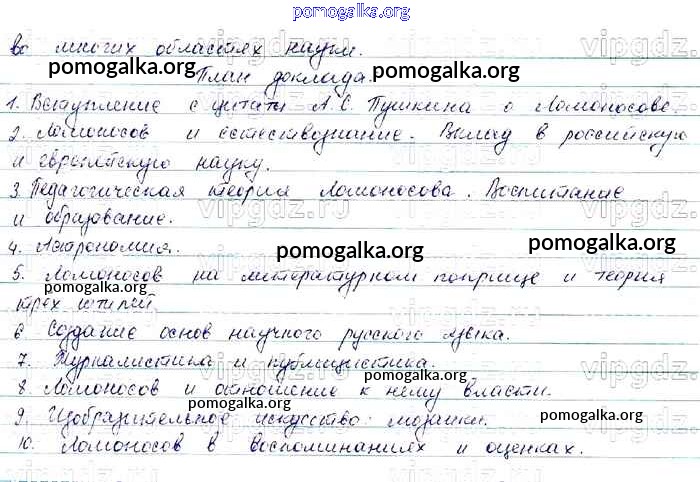 pomogalka.org
во многих областях науки.
pomogalka.org
План доклада.
pomogalka.org
1. Вступление с цитаты А.С. Пушкина о Ломоносове.
2. Ломоносов и естествознание. Вклад в российскую
и европейскую науку.
pomogalka.org
3. Педагогическая теория Ломоносова. Воспитание
и образование.
4. Астрономия.
pomogalka.org
pomogalka.org
5. Ломоносов на литературном поприще и теория
трех штилей
pomogalka.org
6 Создание основ научного русского языка.
7. Журналистика и публицистика.
pomogalka.org
8. Ломоносов и отношение к нему власти.
pomogalka.org
9. Изобразительное искусство: мозаики.
pomogalka.org
10. Ломоносов в воспоминаниях и оценках.
vipgdz.ru